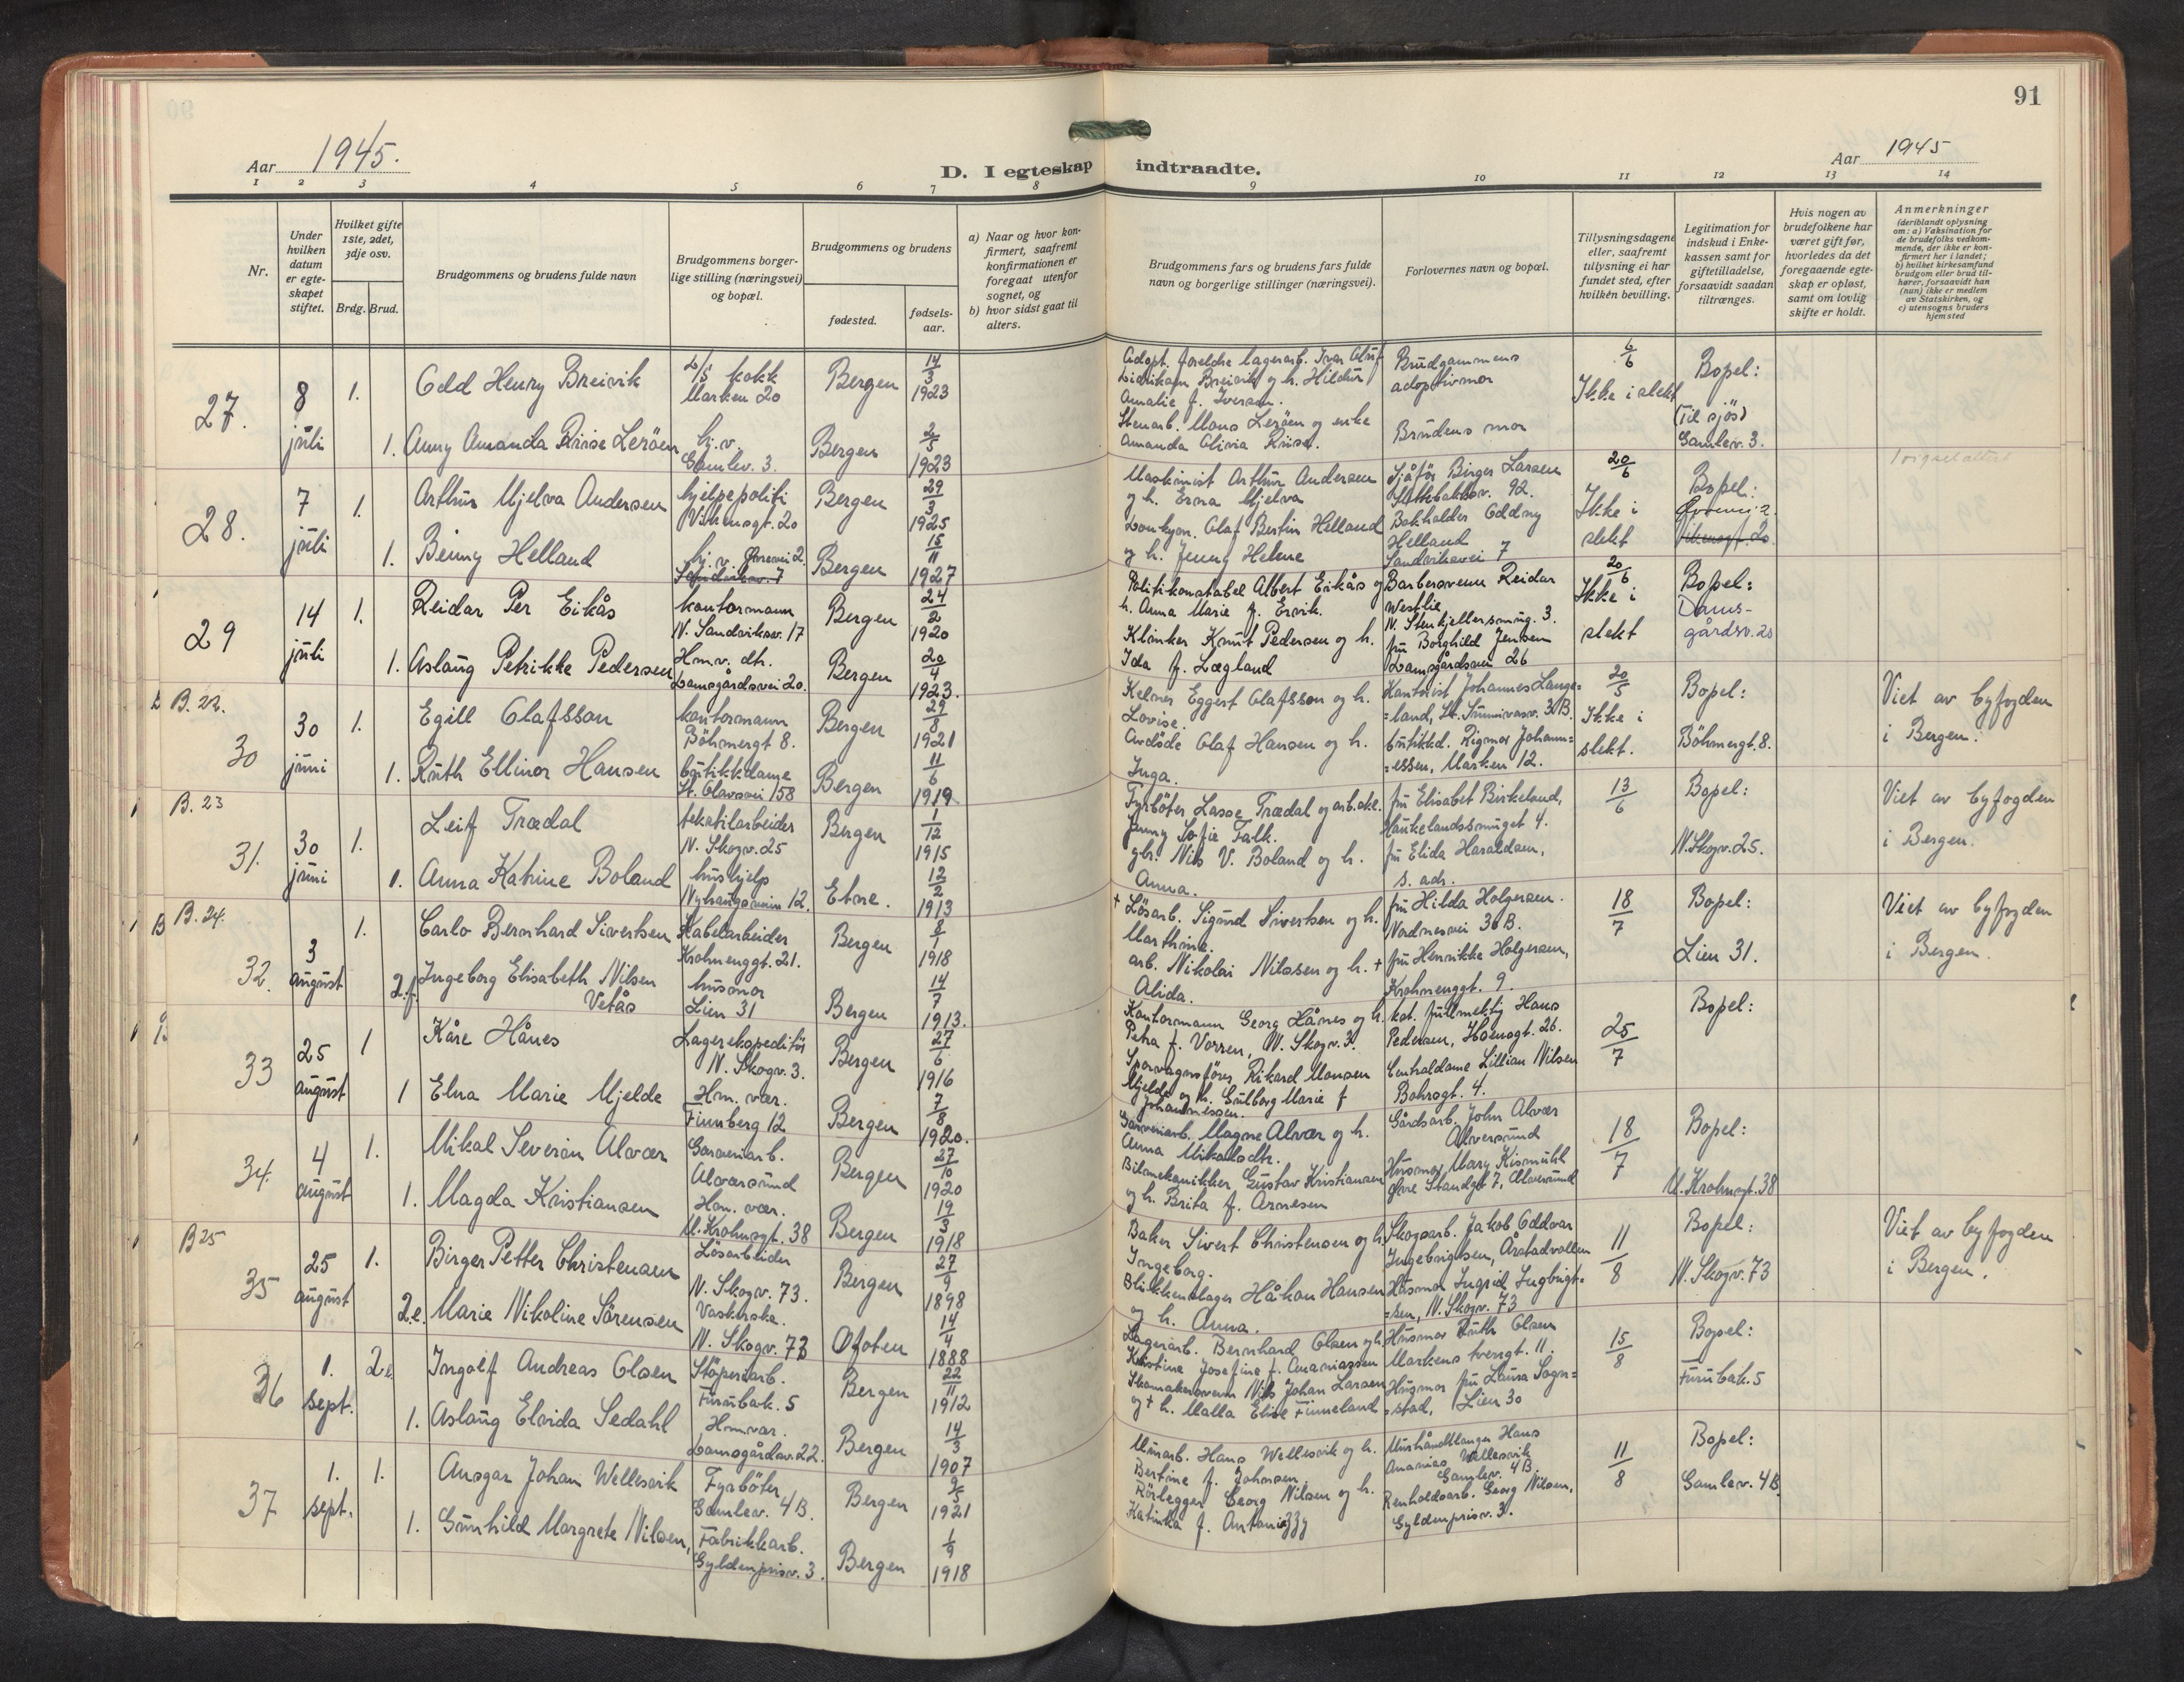 91
Aar 1945.
D. I egteskap indtraadte.
Aar 1945
1 2 3 4 5 6 7 8 9 10 11 12 13 14
Nr.
Under hvilken datum er egteskapet stiftet.
Hvilket gifte 1ste, 2det, 3dje osv.
Brdg. Brud.
Brudgommens og brudens fulde navn
Brudgommens borgerlige stilling (næringsvei) og bopæl.
Brudgommens og brudens
fødested.
fødselsaar.
a) Naar og hvor konfirmert, saafremt konfirmationen er foregaat utenfor sognet, og
b) hvor sidst gaat til alters.
Brudgommens fars og brudens fars fulde navn og borgerlige stillinger (næringsvei).
Forlovernes navn og bopæl.
Tillysningsdagene eller, saafremt tillysning ei har fundet sted, efter hvilken bevilling.
Legitimation for indskud i Enkekassen samt for giftetilladelse, forsaavidt saadan tiltrænges.
Hvis nogen av brudefolkene har været gift før, hvorledes da det foregaaende egteskap er opløst, samt om lovlig skifte er holdt.
Anmerkninger
(deriblandt oplysning om: a) Vaksination for de brudefolks vedkommende, der ikke er konfirmert her i landet; b) hvilket kirkesamfund brudgom eller brud tilhører, forsaavidt han (hun) ikke er medlem av Statskirken, og c) utensogns bruders hjemsted
27. 8 juli 1. Odd Henry Breivik D/S kokk Marken 20 Bergen 14/3 1923
Adopt. foreldre lagerarb. Ivar Oluf Breivik og h. Hildur Amalie f. Iversen. Brudgommens adoptivmor 6/6 Ikke i slekt Bopel: (Til sjøs) Gamlev. 3.
1. Anny Amanda Riise Lerøen hj. v. Gamlev. 3. Bergen 2/5 1923
Stenarb. Mons Lerøen og enke Amanda Olivia Riise. Brudens mor
28. 7 juli 1. Arthur Mjelva Andersen hjelpepoliti Vikensgt. 20 Bergen 29/3 1925
Maskinist Arthur Andersen og h. Erna Mjelva Sjåfør Birger Larsen 92. 20/6 Ikke i slekt Bopel:
1. Benny Helland hj. v. Øvrevei 2. Sandviksv. 7 Bergen 15/11 1927
Olaf Bertin Helland og h. Jenny Helene Bokholder Oddny Helland Sandviksvei 7
29 14 juli 1. Reidar Per Eikås kontormann N. Sandviksv. 17 Bergen 24/2 1920
Politikonstabel Albert Eikås og h. Anna Marie f. Ervik. Barbersvenn Reidar Westlie N. Stenkjellersmug. 3. 20/6 Ikke i slekt Bopel: Damsgårdsv. 20
1. Aslaug Petrikke Pedersen Hm.v. dtr. Damsgårdsvei 20. Bergen 20/4 1923.
Klinker Knut Pedersen og h. Ida f. Lægland fru Borghild Jensen Damsgårdsvei 26
B. 22.
30 30 juni 1. Egill Olafsson kontormann Böhmergt 8. Bergen 29/8 1921
Kelner Eggert Olafsson og h. Lovise. Kontorist Johannes Lange=land, St. Sunnivasv. 30B. 20/5 Ikke i slekt. Bopel: Böhmergt. 8. Viet av byfogden i Bergen.
1. Ruth Ellinor Hansen butikkdame St. Olavsvei 158 Bergen 11/6 1919
Avdøde Olaf Hansen og h. Inga. butikkd. Rigmor Johann=essen, Marken 12.
B. 23
31. 30 juni 1. Leif Trædal tekstilarbeider N. Skogv. 25 Bergen 1/12 1915
Fyrbøter Lasse Trædal og arb.ske. Jenny Sofie Falk. fru Elisabet Birkeland, Haukelandssmuget 4. 13/6 Bopel: N. Skogv. 25. Viet av byfogden i Bergen.
1. Anna Katrine Boland hushjelp 12. Etne. 12/2 1913
gbr. Nils V. Boland og h. Anna. fru Elida Haraldsen, s. adr.
B. 24.
32. 3 august 1. Carlo Bernhard Sivertsen Kabelarbeider Krohnenggt. 21. Bergen 8/1 1918
+ Løsarb. Sigurd Sivertsen og h. Marthine. fru Hilda Holgersen. Nordnesvei 36B. 18/7 Bopel: Lien 31. Viet av byfogden i Bergen.
2.f. Ingeborg Elisabeth Nilsen Vetås husmor Lien 31 Bergen 14/7 1913.
arb. Nikolai Nilssen og h. + Alida. fru Henrikke Holgersen, Krohnenggt. 9.
33 25 august 1 Kåre Hånes Lagerekspeditør N. Skogv. 3. Bergen 27/6 1916
Kontormann Georg Hånes og h. Petra f. Vorren, N. Skogv. 3. kst. fullmektig Hans Pedersen, 26. 25/7 Bopel:
1 Elna Marie Mjelde Hm. vær. Finnberg 12 Bergen 7/8 1920.
Sporvognsfører Rikard Monsen Mjelde og h. Gulborg Marie f Johannessen. Centraldame Lillian Nilsen Bohrsgt. 4.
34. 4 august 1. Mikal Severin Alvær Garveriarb. Alversund Bergen 27/10 1920
Garveriarb. Magne Alvær og h. Anna Mikalsdtr. Gårdsarb. John Alvær Alversund 18/7 Bopel: M. Krohnsgt. 38
1. Magda Kristiansen Hm. vær. M. Krohnsgt. 38 Bergen 19/3 1918
Bilmekanikker Gustav Kristiansen og h. Brita f. Arnesen Husmor Mary Kismühl Øvre Standgt 7, Alversund
B 25
35 25 august 1. Birger Petter Christensen Løsarbeider N. Skogv. 73. Bergen 27/9 1898
Baker Sivert Christensen og h. Ingeborg. Skogsarb. Jakob Oddvar Ingebrigtsen, Årstadvollen 11/8 Bopel: N. Skogv. 73 Viet av byfogden i Bergen.
2.e. Marie Nikoline Sørensen Vaskerske. N. Skogv. 73 Ofoten 14/4 1888
Blikkenslager Håkon Hansen og h. Anna. Husmor Ingrid Ingbrigt=sen, N. Skogv. 73
36 1. sept. 2e. Ingolf Andreas Olsen Støperiarb. Furubak. 5 Bergen 22/11 1912
Lagerarb. Bernhard Olsen og h. Kristine Josefine f. Ananiassen Husmor Ruth Olsen Markens tverrgt. 11. 15/8 Bopel: Furubak. 5
1. Aslaug Elvida Sedahl Hm.vær. Damsgårdsv. 22. Bergen 14/3 1907
Skomakersvenn Nils Johan Larsen og + h. Malla Elise Finneland Husmor fru Laura Sogn=stad, Lien 30
37 1. sept. 1. Ansgar Johan Wellesvik Fyrbøter Gamlev. 4B. Bergen 9/5 1921
Murarb. Hans Wellesvik og h. Bertine f. Johnsen Murhåndtlanger Hans Ananias Wellesvik Gamlev. 4B. 11/8 Bopel: Gamlev. 4B
1. Gunhild Margrete Nilsen, Fabrikkarb. Gyldenprisv. 3. Bergen 1/9 1918
Rørlegger Georg Nilsen og h. Katinka f. Renholdsarb. Georg Nilsen, Gyldenprisv. 3.